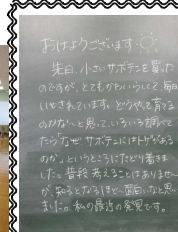 おはようございます
先日、小さいサボテンを買った
のですが、とてもかわいらしくて毎日
いやされています。どうやって育てる
のかな〜と思って、いろいろ調べて
たら「なぜ、サボテンにはトゲがある
のか」というところにたどり着きま
した。普段考えることはありません
が、知るとなるほど〜面白いなと思い
ました。私の最近の発見です。